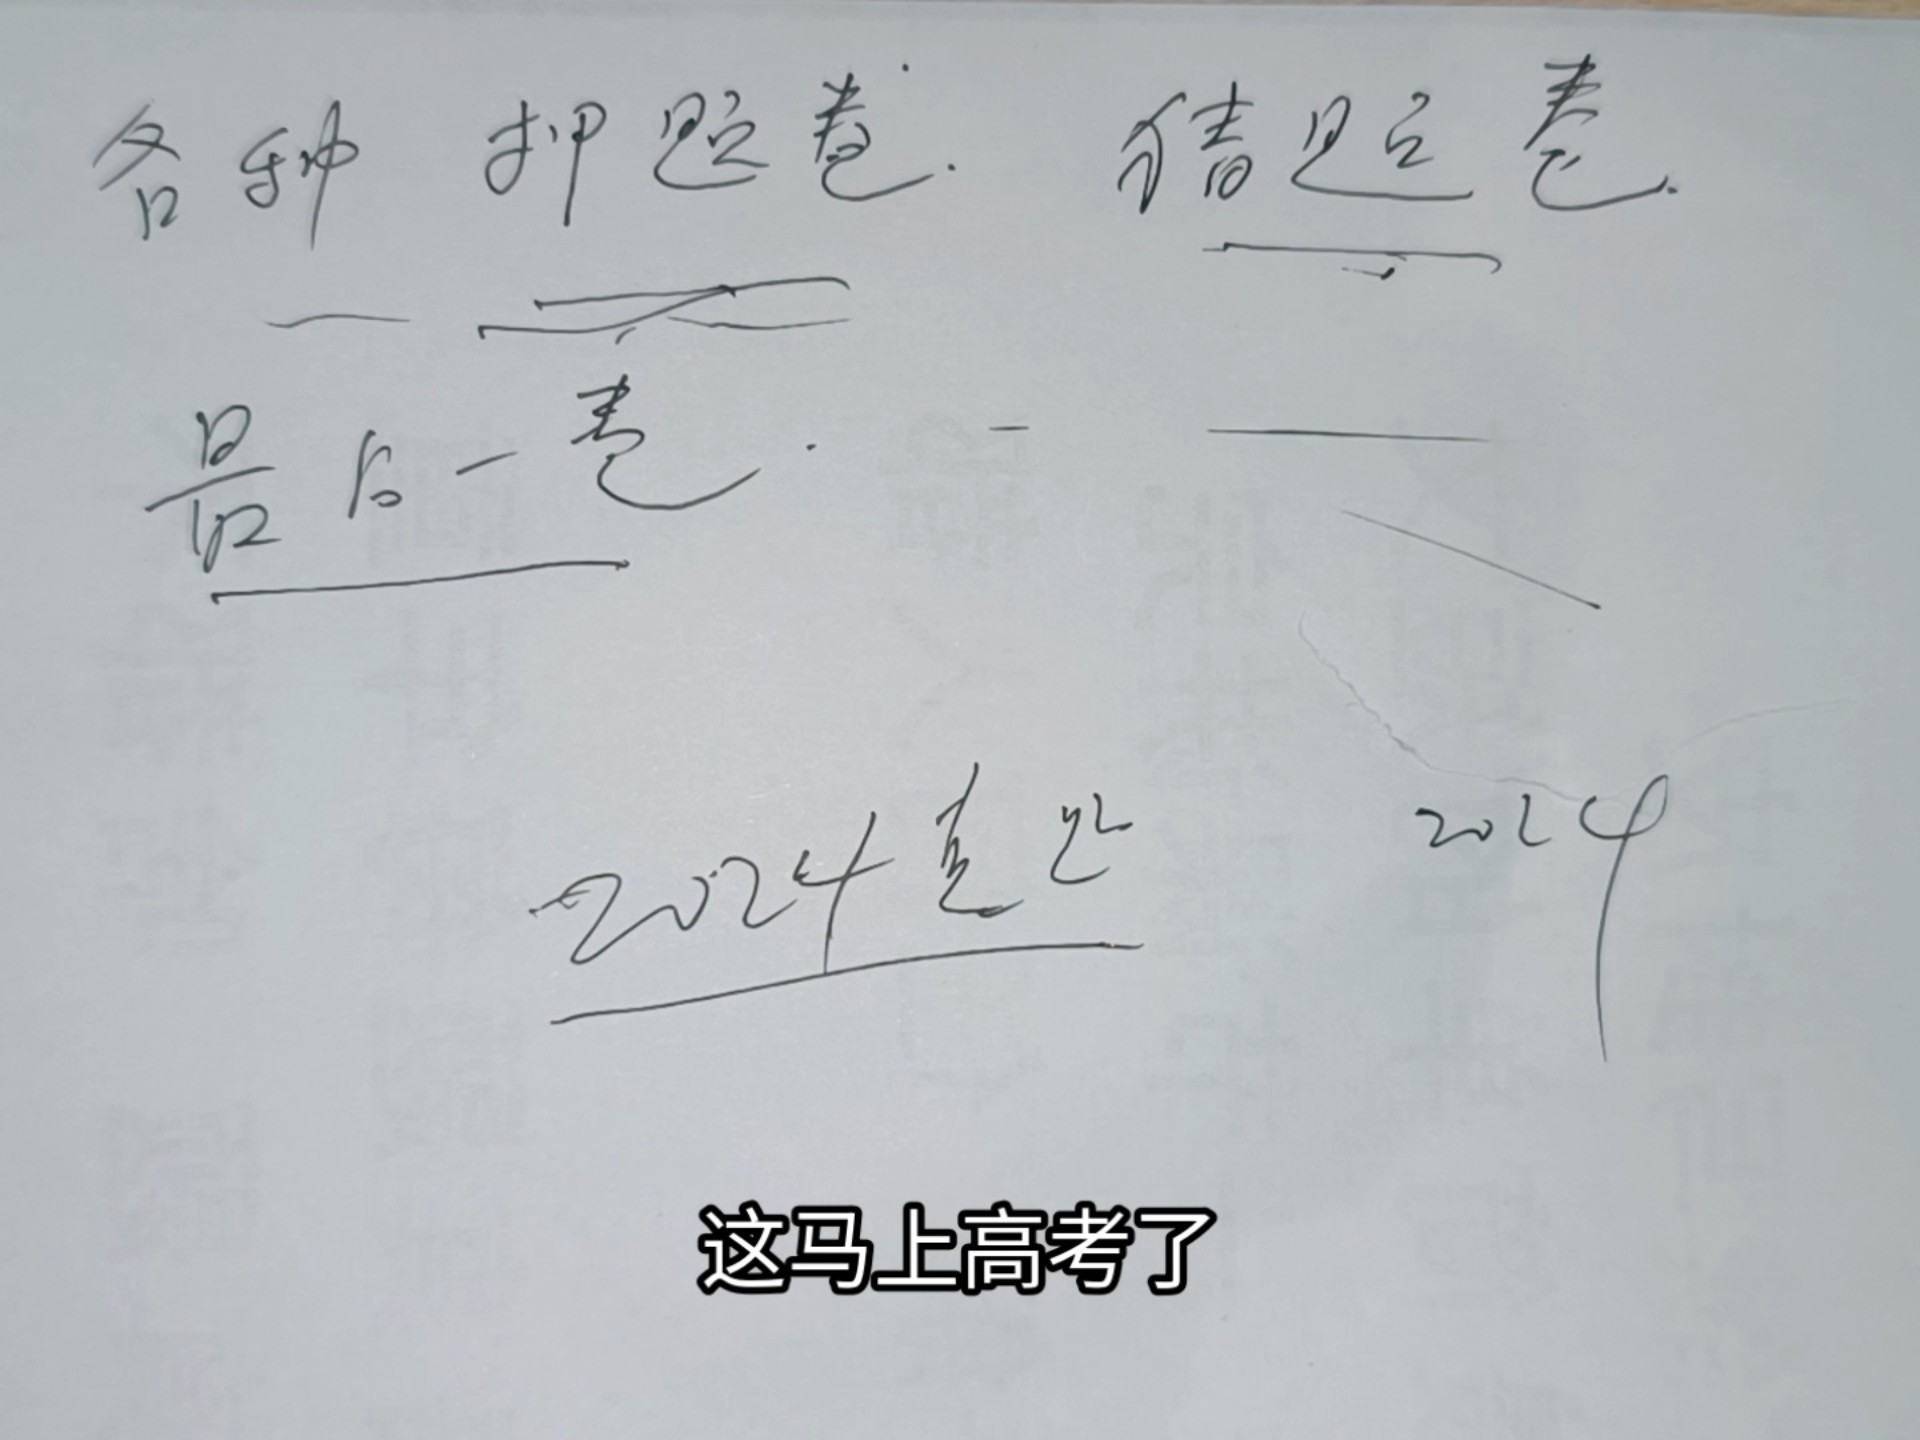 各种 押题卷. 猜题卷.
最后一卷.
2024 2024
这马上高考了